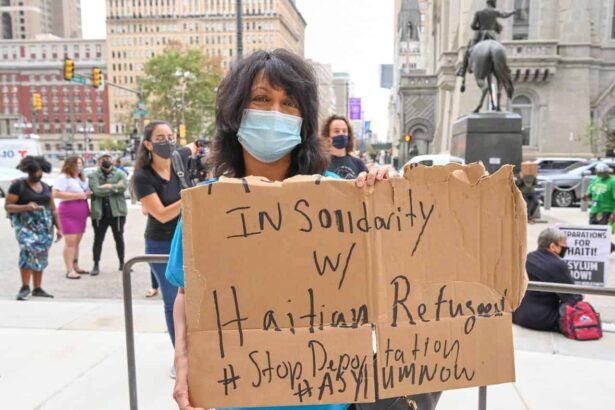 IN Solidarity
w/
Haitian Refugees
#Stop Deportation
#ASYlumNow
REPARATIONS
FOR HAITI!
ASYLUM
NOW!